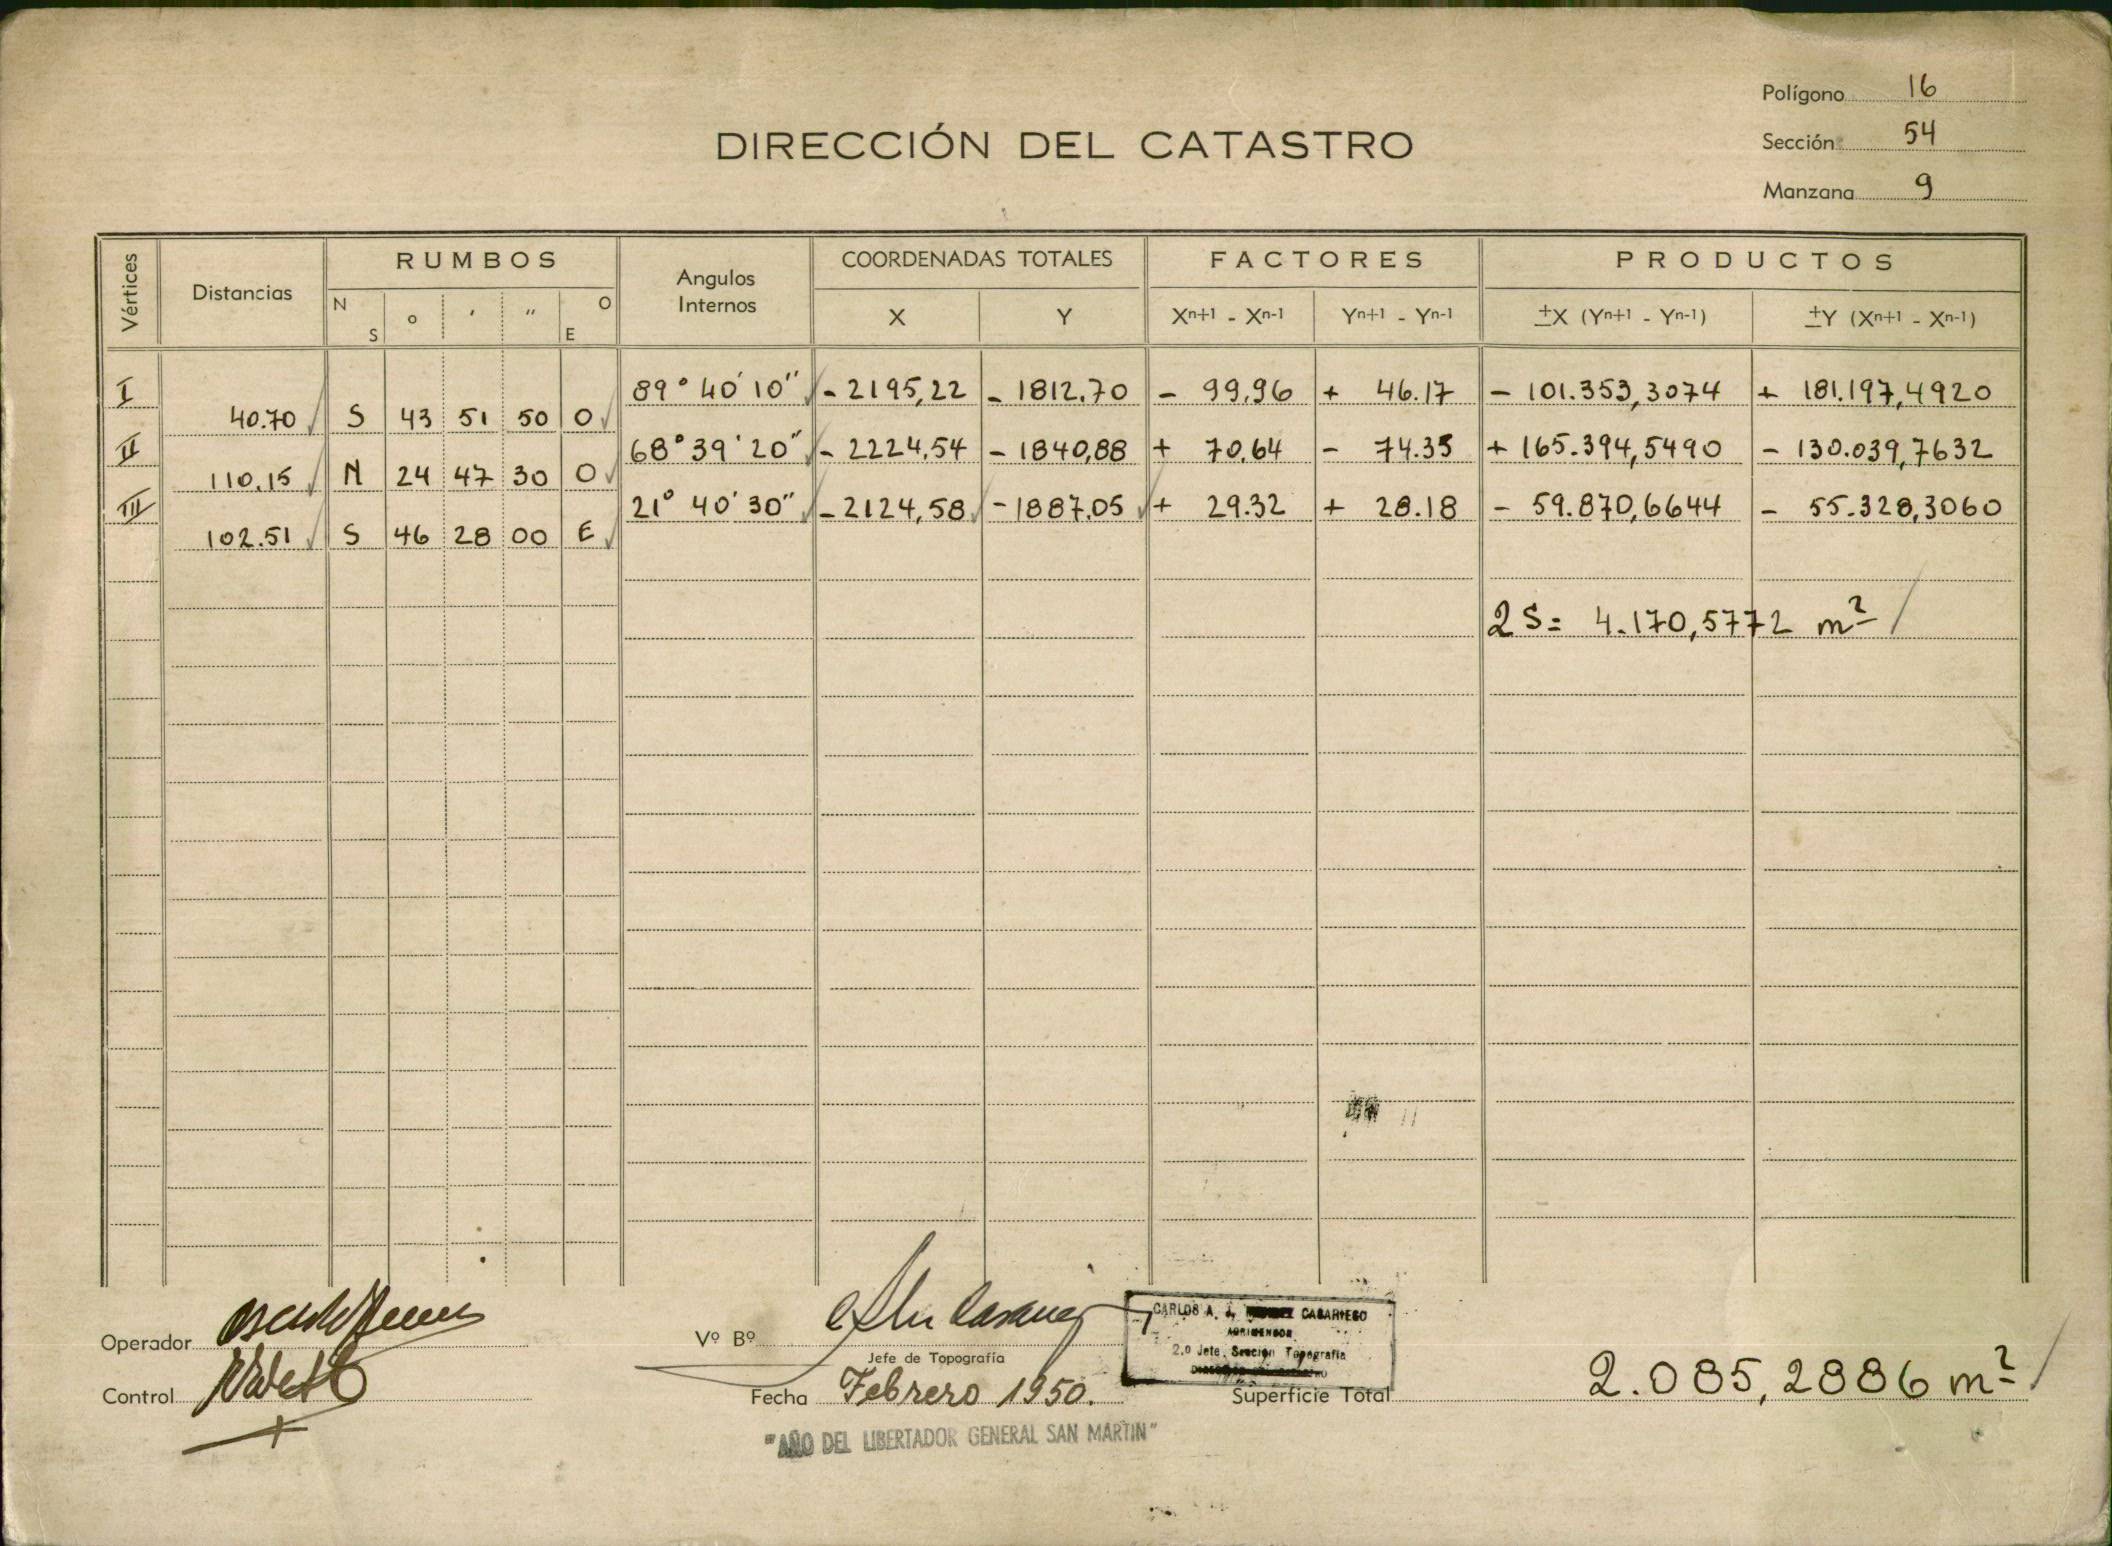 Polígono 16
DIRECCIÓN DEL CATASTRO
Sección 54
Manzana 9
Vértices Distancias RUMBOS Angulos Internos COORDENADAS TOTALES FACTORES PRODUCTOS
N S o ' '' O E X Y Xn+1 - Xn-1 Yn+1 - Yn-1 ±X (Yn+1 - Yn-1) ±Y (Xn+1 - Xn-1)
I 89° 40' 10" - 2195,22 - 1812.70 - 99,96 + 46.17 - 101.353,3074 + 181.197,4920
40.70 S 43 51 50 O
II 68° 39' 20" - 2224,54 - 1840,88 + 70,64 - 74.35 + 165.394,5490 - 130.039,7632
110.15 N 24 47 30 O
III 21° 40' 30" - 2124,58 - 1887.05 + 29.32 + 28.18 - 59.870,6644 - 55.328,3060
102.51 S 46 28 00 E
2S = 4.170,5772 m²
Operador
Vº Bº
CARLOS A. J. CASARIEGO
AGRIMENSOR
2.º Jefe, Sección Topografía
Jefe de Topografía
Control
Fecha Febrero 1950.
Superficie Total 2.085,2886 m²
"AÑO DEL LIBERTADOR GENERAL SAN MARTIN"